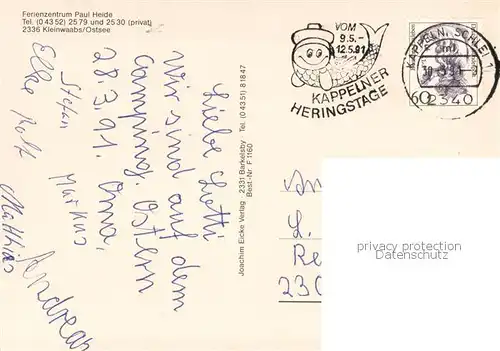 Ferienzentrum Paul Heide
Tel. (0 43 52) 25 79 und 25 30 (privat)
2336 Kleinwaabs/Ostsee
VOM
9.5.-
12.5.91
KAPPELNER
HERINGSTAGE
KAPPELN, SCHLEI 1
2340
60
Liebe Lotti
Wir sind auf dem
Camping. Ostern
28.3.91. Oma,
Markus
Stefan
Elke Rolf
Matthias
Andreas
Joachim Eicke Verlag 2331 Barkelsby Tel. (0 43 51) 8 18 47
Best.-Nr. F 1160
An
L.
Re
230
privacy protection
Datenschutz